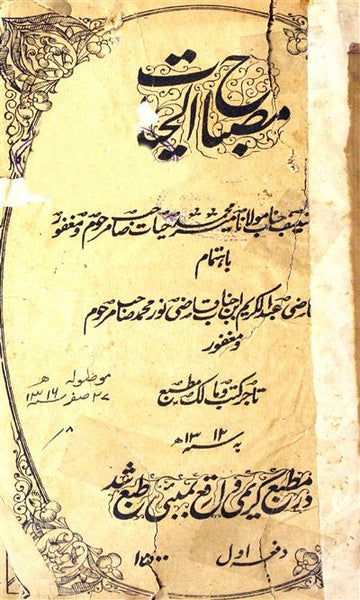 مصباح الحیات
جناب مولانا محمد حیات صاحب مرحوم و مغفور
باہتمام
قاضی عبدالکریم ابن جناب قاضی نور محمد صاحب مرحوم
و مغفور
تاجر کتب و مالک مطبع
موصولہ
۲۷ صفر سنہ ۱۳۱۶ ھ
بہ سنہ ۱۳۱۲ ھ
در مطبع کریمی واقع بمبئی طبع شد
دفعہ اول